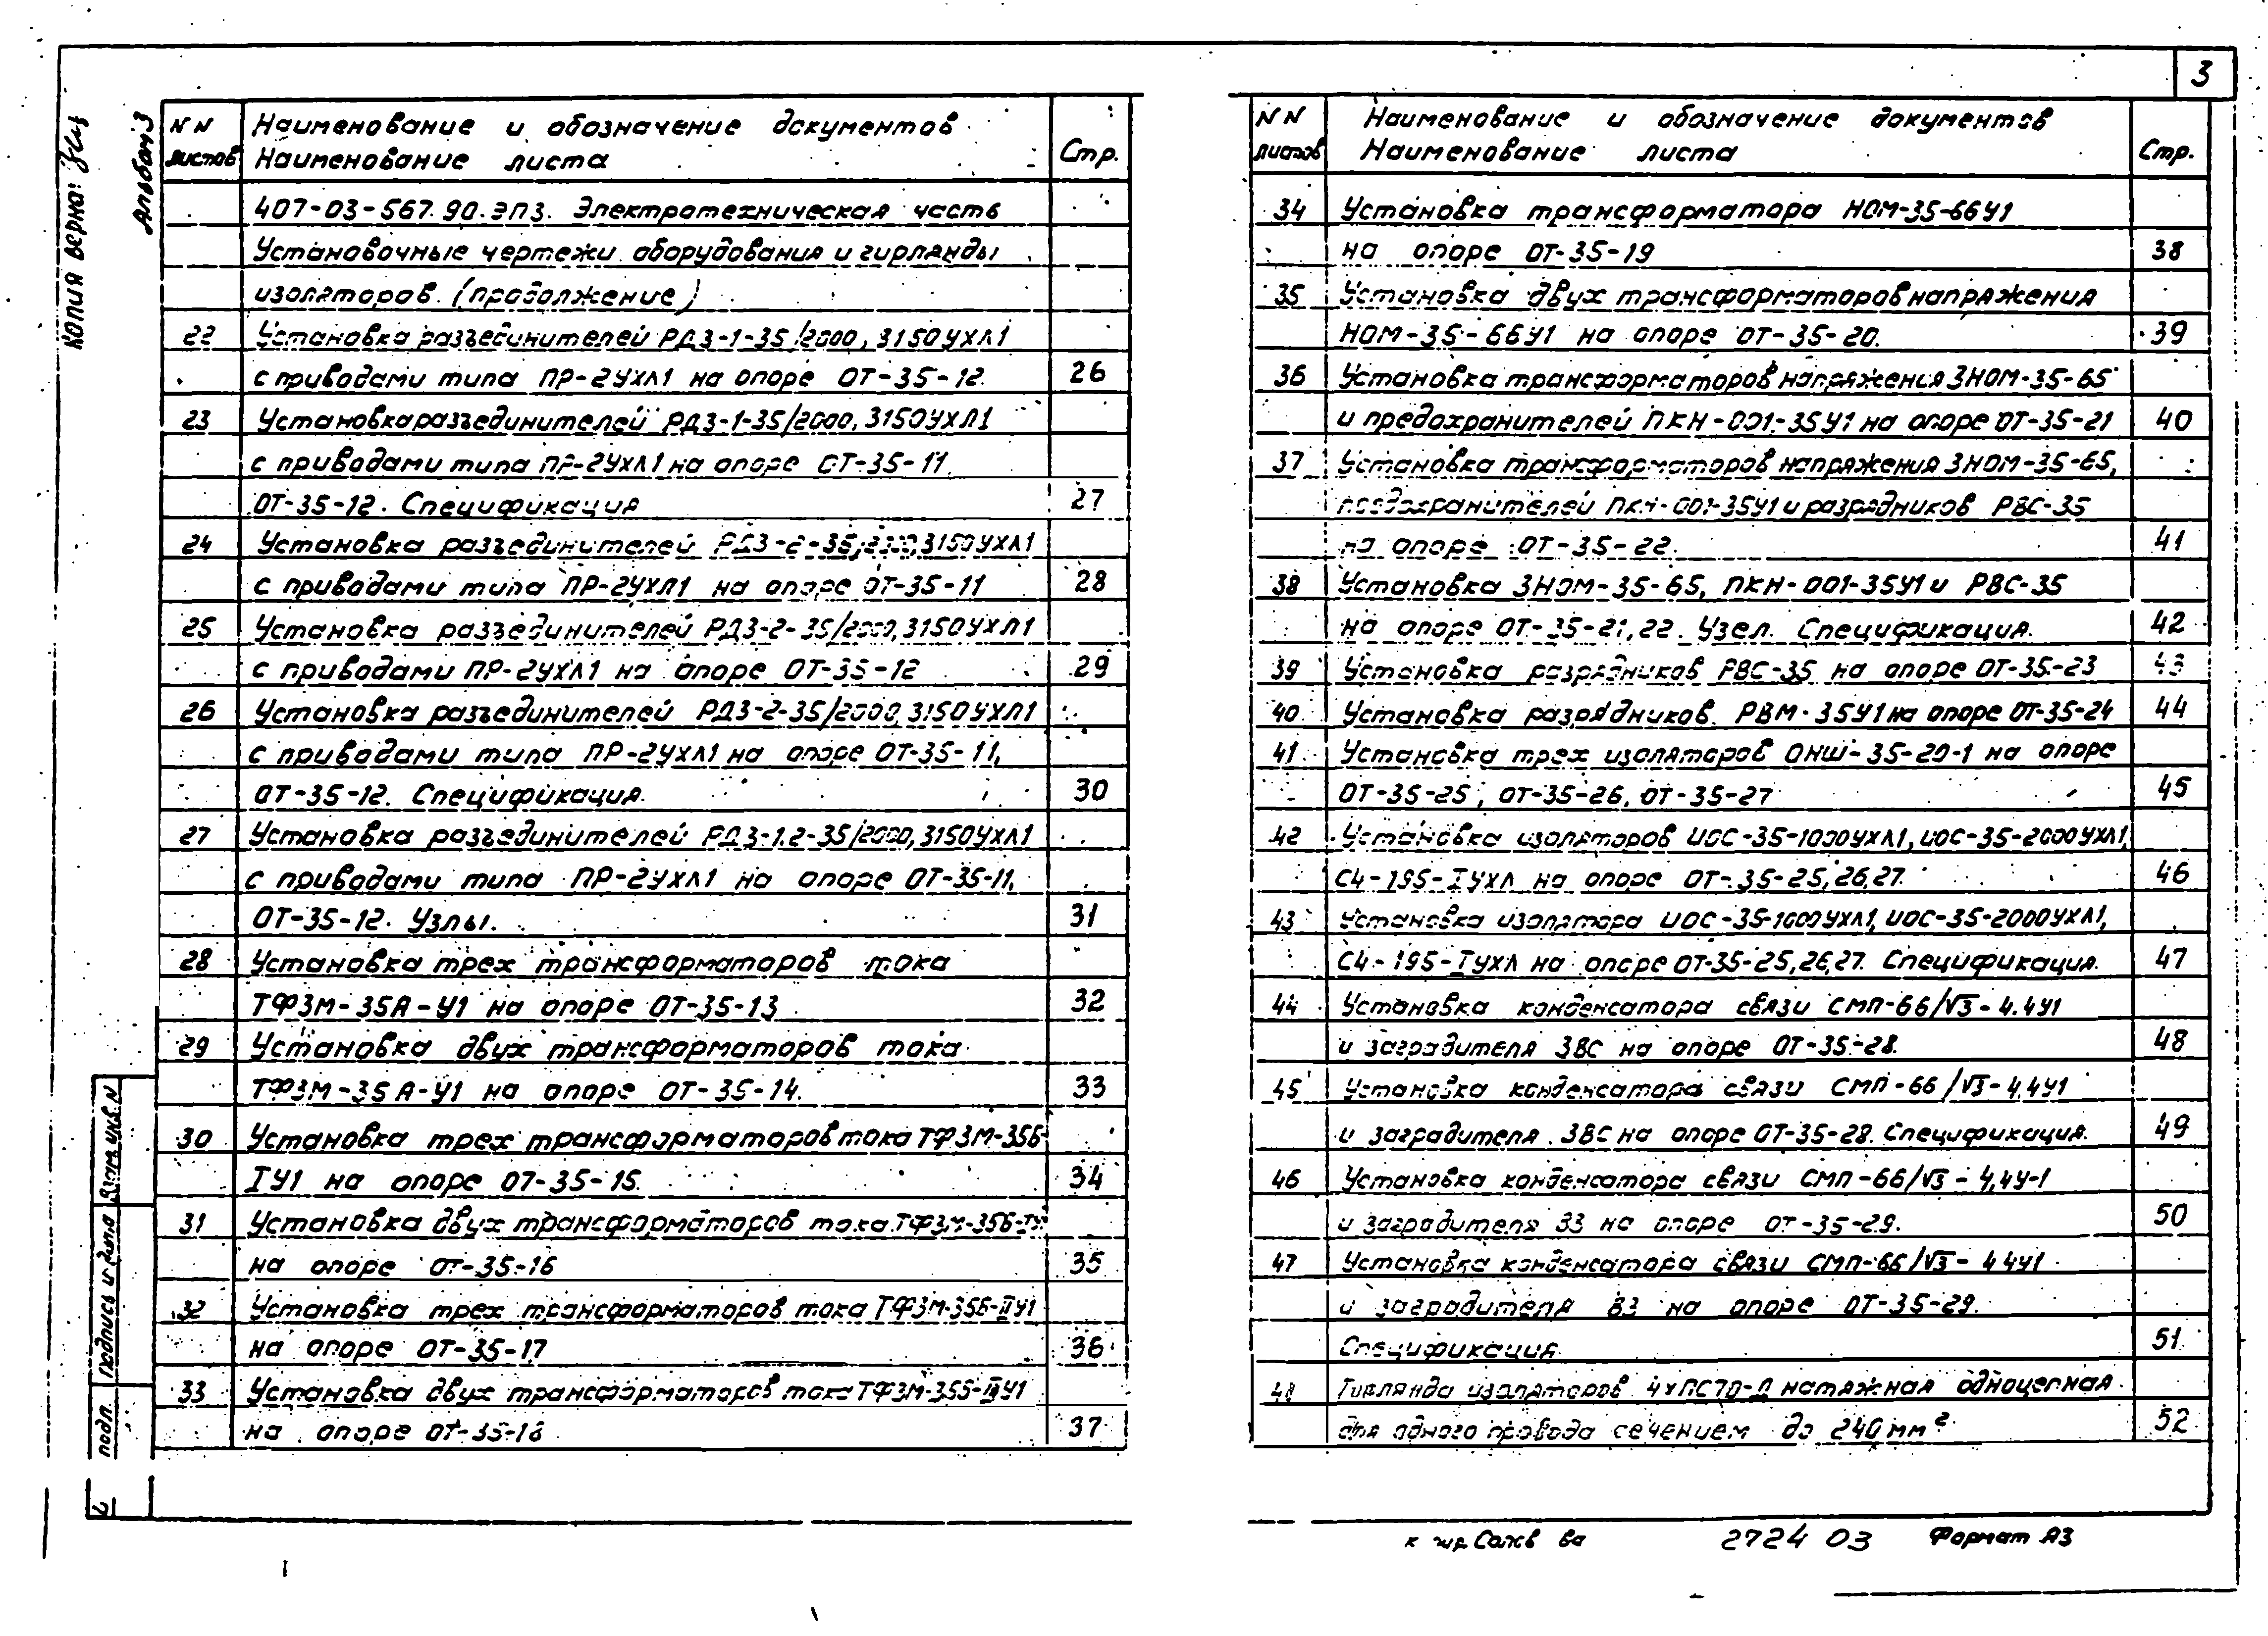 3
Копия верна:
Альбом 3
NN листов
Наименование и обозначение документов
Наименование листа
Стр.
407-03-567.90.ЭП3. Электротехническая часть
Установочные чертежи оборудования и гирлянды
изоляторов. (продолжение)
22 Установка разъединителей РДЗ-1-35/2000, 3150УХЛ1
с приводами типа ПР-2УХЛ1 на опоре ОТ-35-12. 26
23 Установка разъединителей РДЗ-1-35/2000, 3150УХЛ1
с приводами типа ПР-2УХЛ1 на опоре ОТ-35-11,
ОТ-35-12. Спецификация 27
24 Установка разъединителей РДЗ-2-35/2000,3150УХЛ1
с приводами типа ПР-2УХЛ1 на опоре ОТ-35-11 28
25 Установка разъединителей РДЗ-2-35/2000,3150УХЛ1
с приводами ПР-2УХЛ1 на опоре ОТ-35-12 29
26 Установка разъединителей РДЗ-2-35/2000,3150УХЛ1
с приводами типа ПР-2УХЛ1 на опоре ОТ-35-11,
ОТ-35-12. Спецификация. 30
27 Установка разъединителей РДЗ-1.2-35/2000,3150УХЛ1
с приводами типа ПР-2УХЛ1 на опоре ОТ-35-11,
ОТ-35-12. Узлы. 31
28 Установка трех трансформаторов тока
ТФЗМ-35А-У1 на опоре ОТ-35-13 32
29 Установка двух трансформаторов тока
ТФЗМ-35А-У1 на опоре ОТ-35-14. 33
30 Установка трех трансформаторов тока ТФЗМ-35Б-
IУ1 на опоре ОТ-35-15. 34
31 Установка двух трансформаторов тока ТФЗМ-35Б-IУ1
на опоре ОТ-35-16 35
32 Установка трех трансформаторов тока ТФЗМ-35Б-IIУ1
на опоре ОТ-35-17 36
33 Установка двух трансформаторов тока ТФЗМ-35Б-IIУ1
на опоре ОТ-35-18 37
NN листов
Наименование и обозначение документов
Наименование листа
Стр.
34 Установка трансформатора НОМ-35-66У1
на опоре ОТ-35-19 38
35 Установка двух трансформаторов напряжения
НОМ-35-66У1 на опоре ОТ-35-20. 39
36 Установка трансформаторов напряжения ЗНОМ-35-65
и предохранителей ПКН-001-35У1 на опоре ОТ-35-21 40
37 Установка трансформаторов напряжения ЗНОМ-35-65,
предохранителей ПКН-001-35У1 и разрядников РВС-35
на опоре ОТ-35-22. 41
38 Установка ЗНОМ-35-65, ПКН-001-35У1 и РВС-35
на опоре ОТ-35-21,22. Узел. Спецификация. 42
39 Установка разрядников РВС-35 на опоре ОТ-35-23 43
40 Установка разрядников РВМ-35У1 на опоре ОТ-35-24 44
41 Установка трех изоляторов ОНШ-35-20-1 на опоре
ОТ-35-25, ОТ-35-26, ОТ-35-27 45
42 Установка изоляторов ИОС-35-1000УХЛ1, ИОС-35-2000УХЛ1,
С4-195-IУХЛ на опоре ОТ-35-25,26,27. 46
43 Установка изолятора ИОС-35-1000УХЛ1, ИОС-35-2000УХЛ1,
С4-195-IУХЛ на опоре ОТ-35-25,26,27. Спецификация. 47
44 Установка конденсатора связи СМП-66/√3-4.4У1
и заградителя ЗВС на опоре ОТ-35-28. 48
45 Установка конденсатора связи СМП-66/√3-4,4У1
и заградителя ЗВС на опоре ОТ-35-28. Спецификация. 49
46 Установка конденсатора связи СМП-66/√3-4,4У-1
и заградителя ВЗ на опоре ОТ-35-29. 50
47 Установка конденсатора связи СМП-66/√3-4,4У1
и заградителя ВЗ на опоре ОТ-35-29.
Спецификация 51
48 Гирлянда изоляторов 4хПС70-Д натяжная одноцепная
для одного провода сечением до 240 мм² 52
Взам. инв. N
Подпись и дата
подл.
2724 03
Формат А3